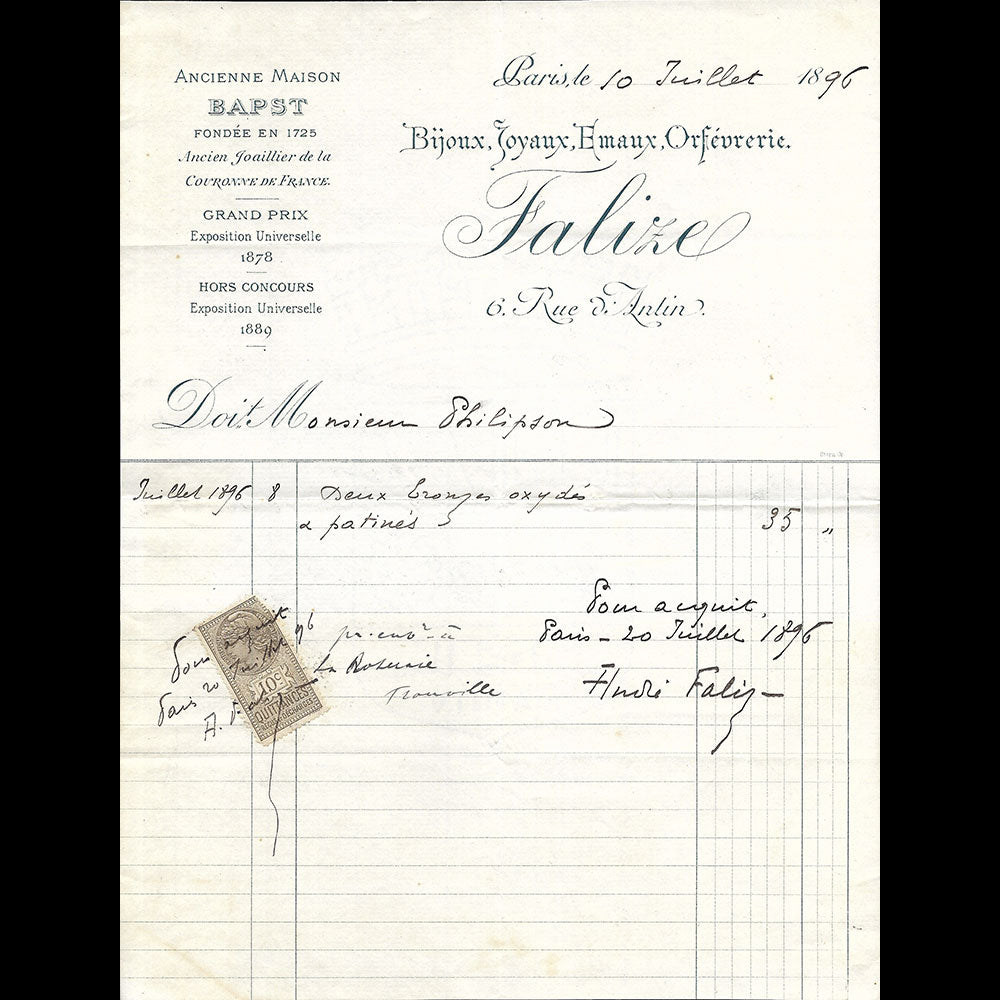 ANCIENNE MAISON
BAPST
FONDÉE EN 1725
Ancien Joaillier de la
COURONNE DE FRANCE.
GRAND PRIX
Exposition Universelle
1878
HORS CONCOURS
Exposition Universelle
1889
Paris, le 10 Juillet 1896
Bijoux, Joyaux, Emaux, Orfévrerie.
Falize
6. Rue d'Antin.
Doit Monsieur Philipson
Juillet 1896 8 Deux bronzes oxydés
& patinés 35 "
Pour acquit,
Paris - 20 Juillet 1896
André Falize
à
La Roseraie
Trouville
Pour acquit
Paris 20 Juillet 96
A. Falize